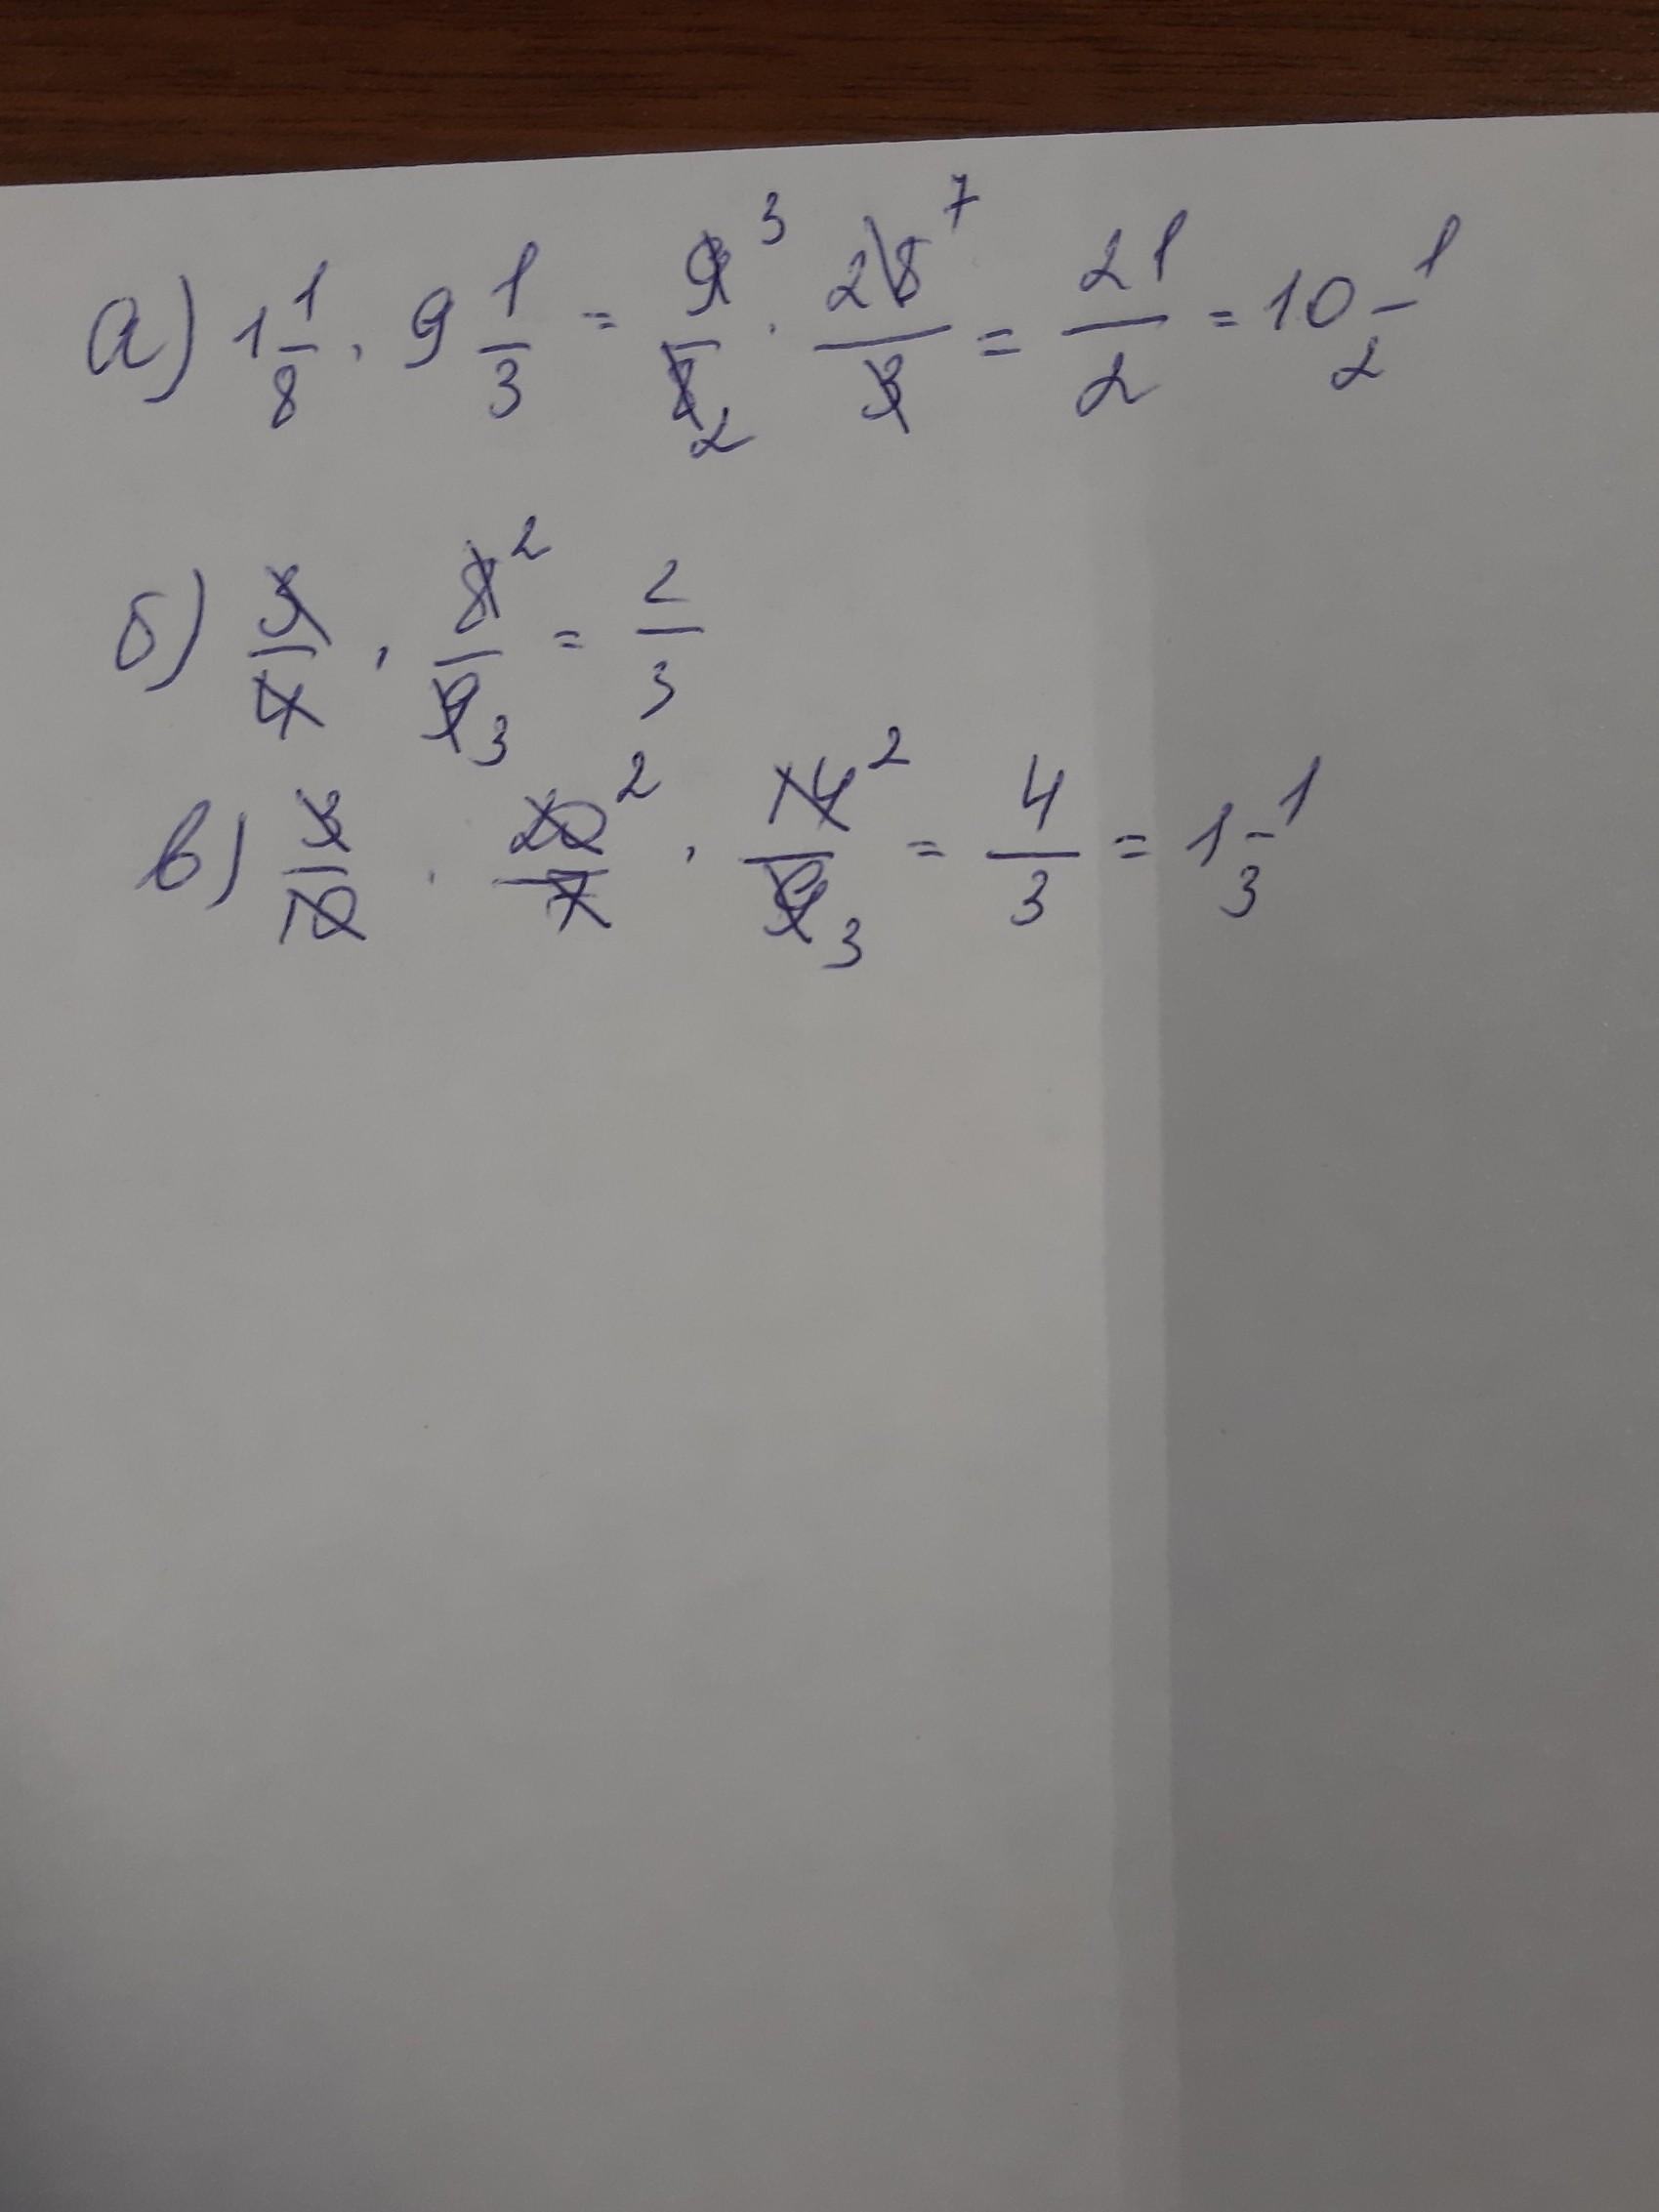 а) 1 1/8 · 9 1/3 = 9 3/8 2 · 28 7/3 = 21/2 = 10 1/2
б) 3/4 · 8 2/9 3 = 2/3
в) 3/10 · 20 2/7 · 14 2/9 3 = 4/3 = 1 1/3